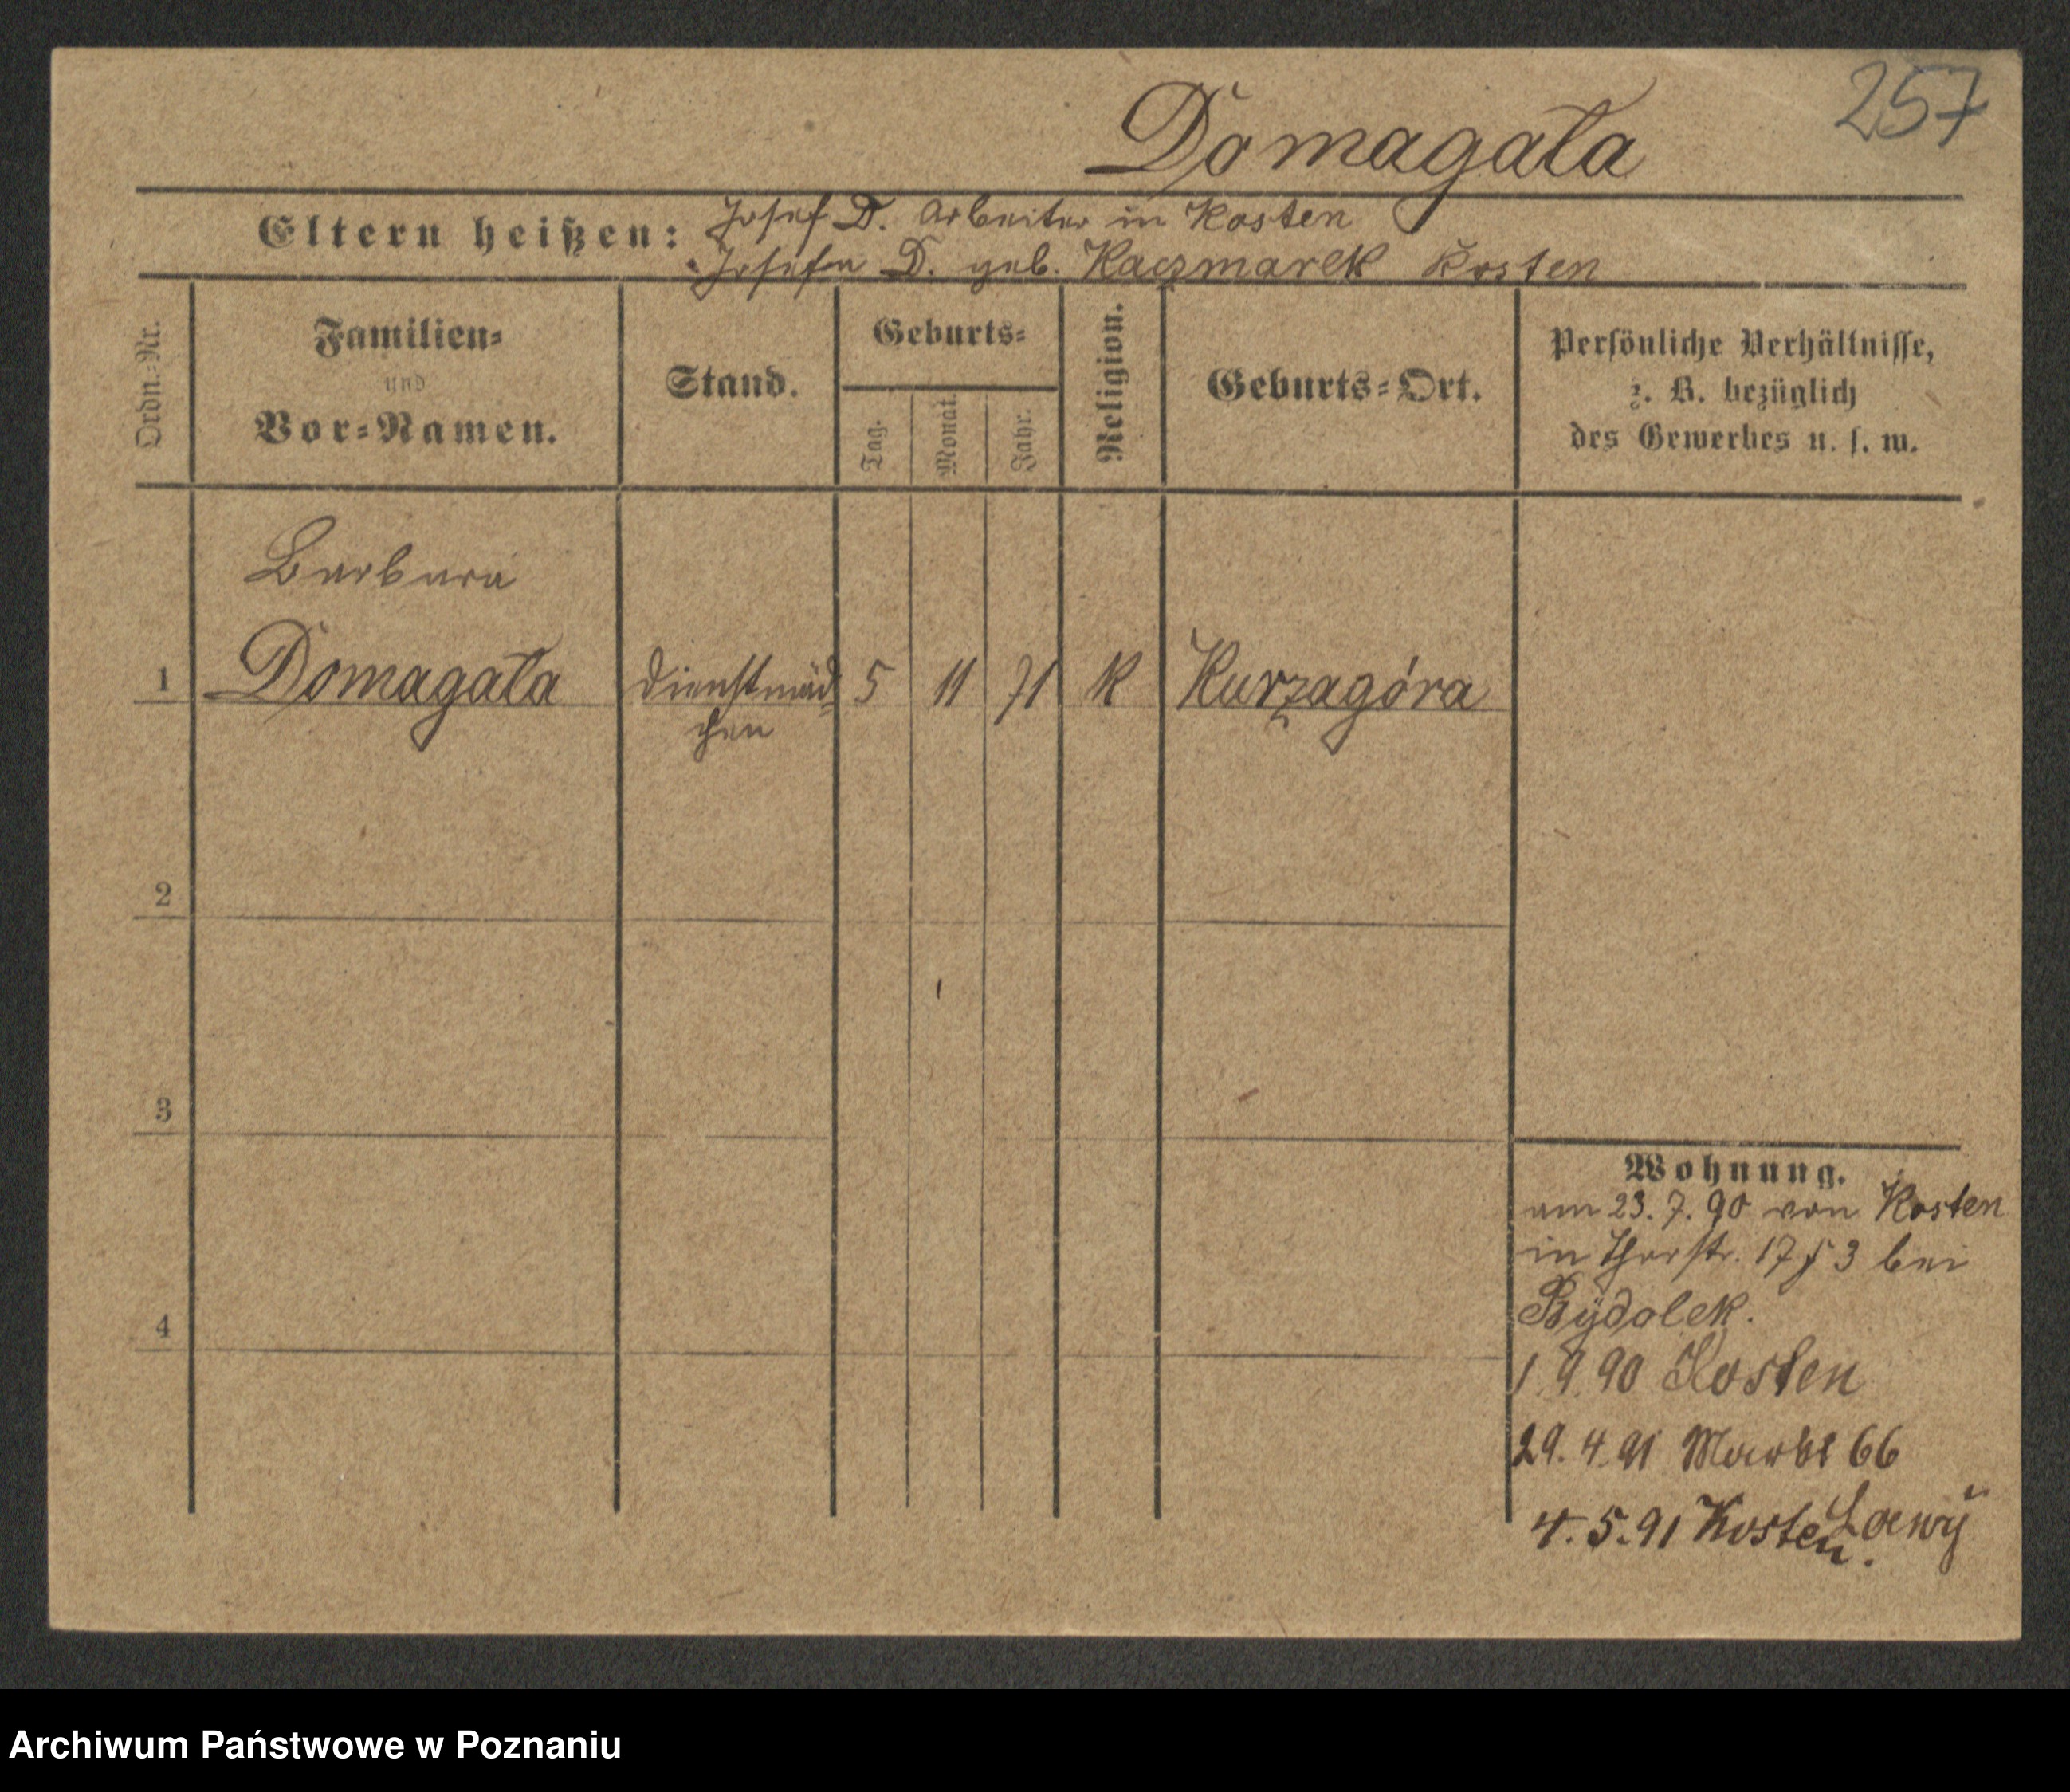 257
Domagała
Eltern heißen: Josef D. Arbeiter in Kosten
Josefa D. geb. Kaczmarek Kosten
Ordn.-Nr.
Familien-
und
Vor-Namen.
Stand.
Geburts-
Tag.
Monat.
Jahr.
Religion.
Geburts-Ort.
Persönliche Verhältnisse,
z. B. bezüglich
des Gewerbes u. s. w.
Barbara
1 Domagała Dienstmäd- 5 11 71 K Kurzagóra
chen
2
3
4
Wohnung.
am 23. 7. 90 von Kosten
in Thorstr. 17 3 bei
Bÿdolek.
1 9. 90 Kosten
29. 4. 91 Markt 66
Loewÿ
4. 5. 91 Kosten.
Archiwum Państwowe w Poznaniu